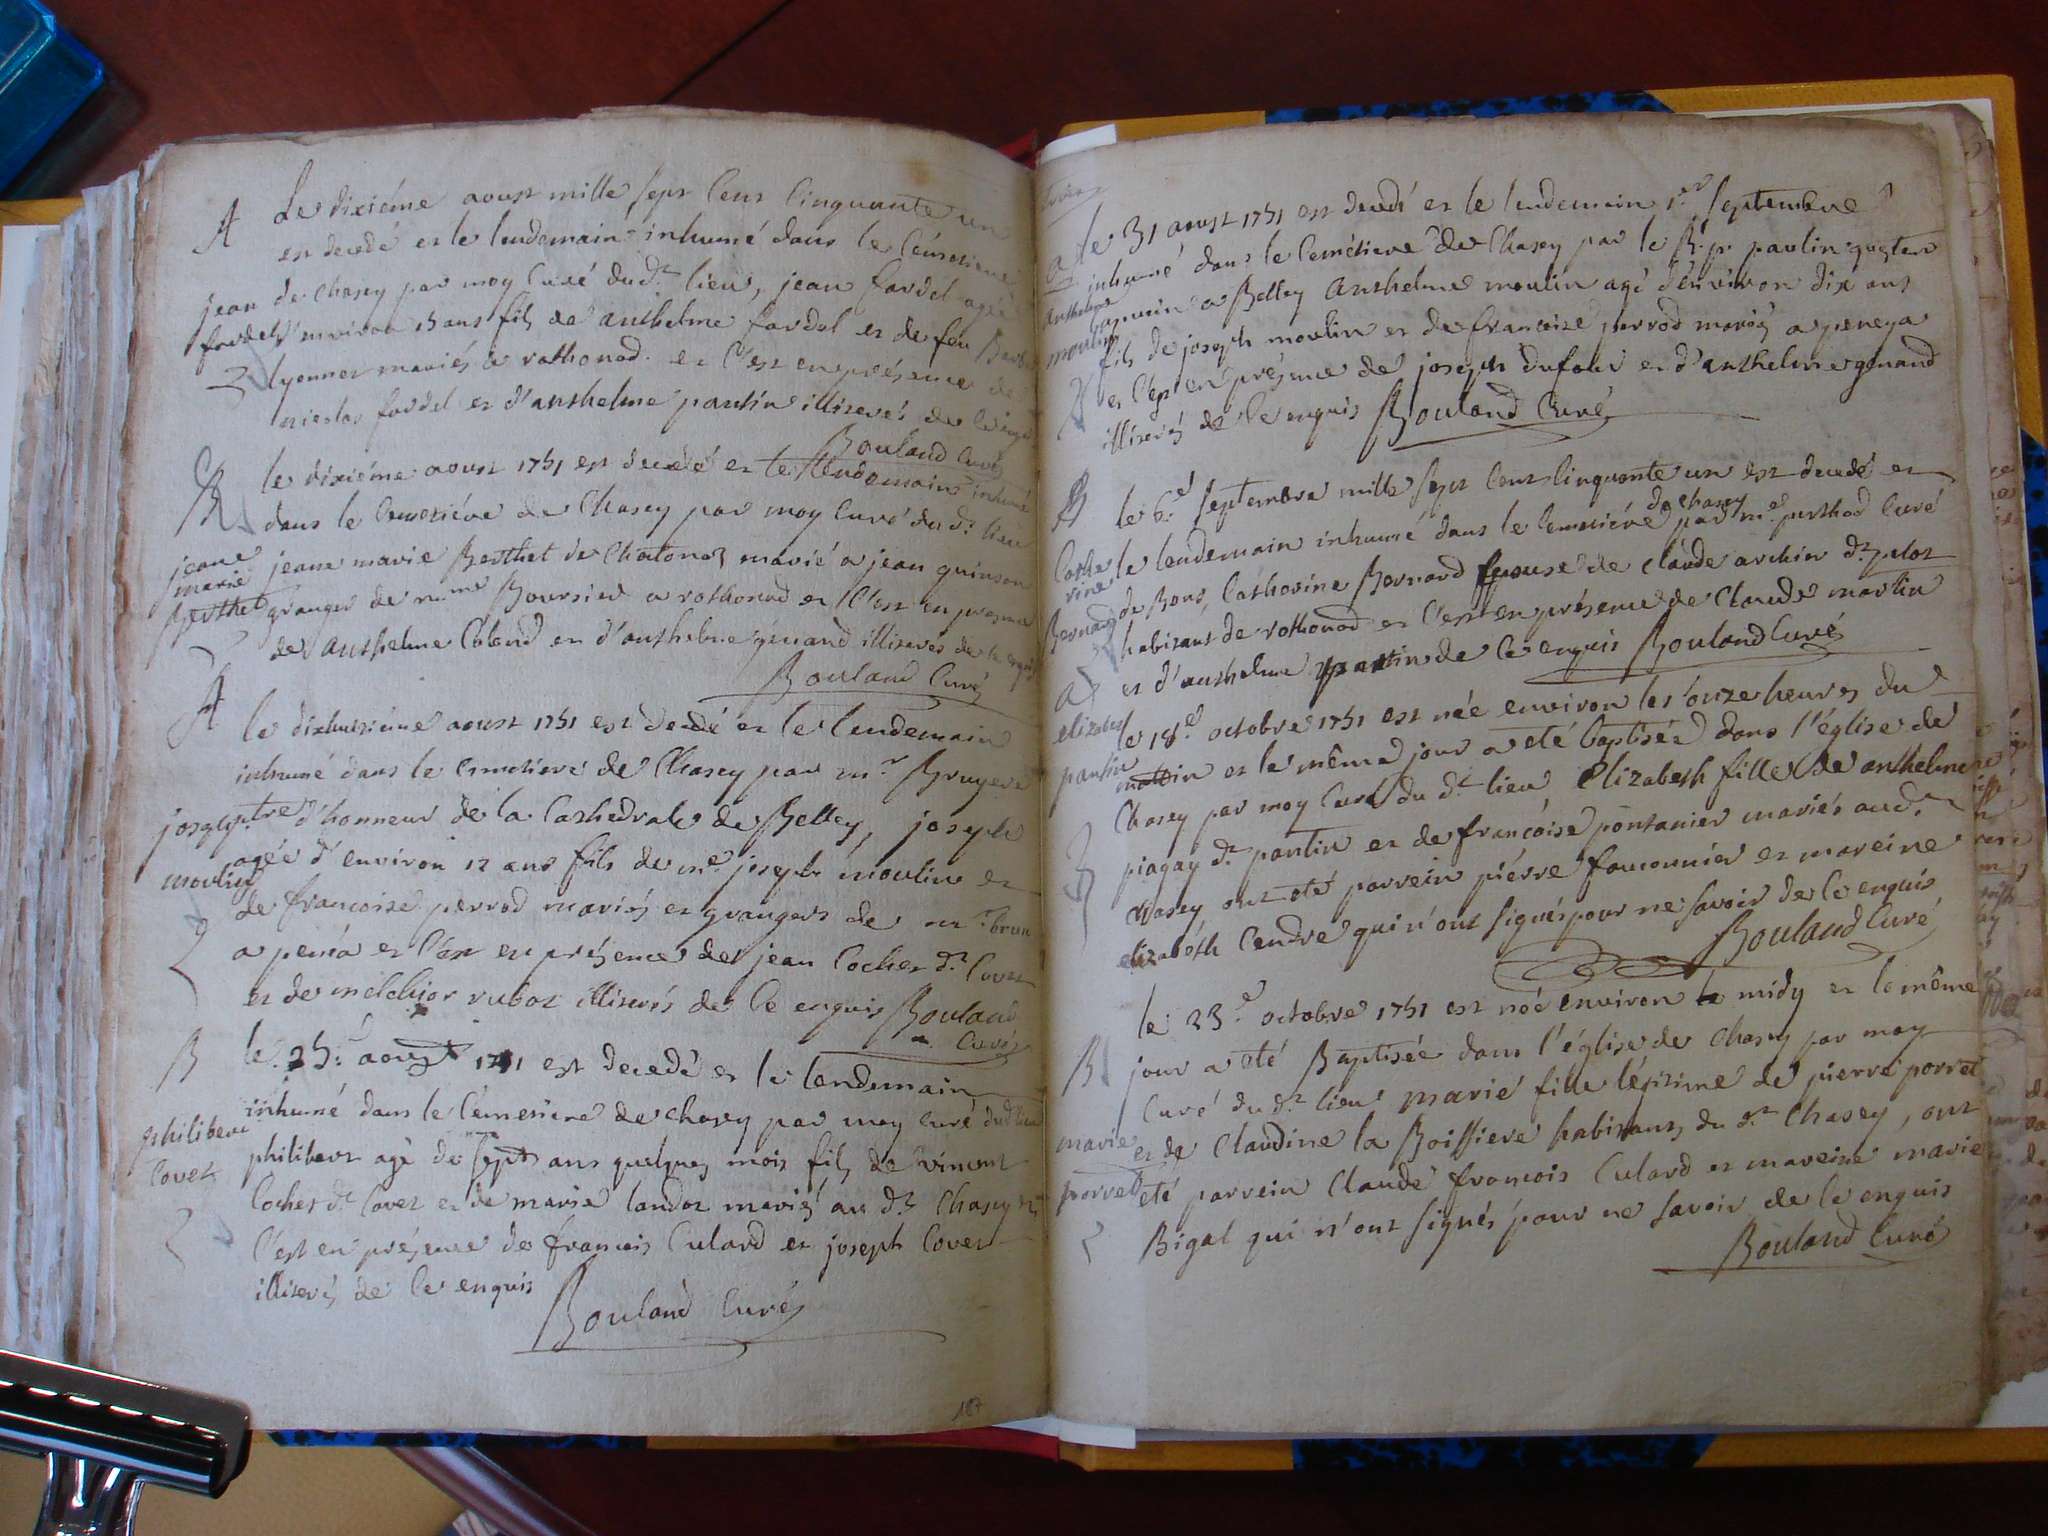 A Le dixiéme aoust mille sept cens cinquante un
est decedé et le lendemain inhumé dans le cémetiere
jean de Chasey par moy curé dud.t lieu, jean fardel agé
fardel d'environ 15 ans fils de anthelme fardel et de feu
lyonnet mariés a rothonod. et c'est en présence de
nicolas fardel et d'anthelme pantin illiterés de ce enquis
Bouland curé
B le dixiéme aoust 1751 est decedé et le lendemain inhumé
dans le cemetiére de Chasey par moy curé du d.t lieu
jeane
marie jeane marie Berthet de Chatonod marié a jean guinson
Berthet granger de Boursier a rothonod et c'est en presence
de anthelme Coland et d'anthelme génand illiterés de ce enquis
Bouland curé
A
le dixhuitiéme aoust 1751 est decedé et le lendemain
inhumé dans le cimetiere de Chasey par m.r Bruyere
joseph p.tre d'honneur de la Cathedrale de Belley, joseph
moulin agée d'environ 12 ans fils de m.e joseph moulin et
de francoise perrod mariés et grangers de m.r brun
a penia et c'est en présence de jean Cochet d.t Covet
et de melchior rubot illiterés de ce enquis Bouland
curé
B le 25.e aoust 1751 est decedé et le lendemain
inhumé dans le cémetiére de chasey par moy curé dud lieu
philibert
philibert agé de sept ans quelques mois fils de vincent
Covet
Cochet d.t Covet et de marie landot mariés au d.t Chasey et
c'est en présence de francois Culard et joseph Covet
illiterés de ce enquis
Bouland curé
187
a le 31 aoust 1751 est decedé et le lendemain 1.er Septembre
inhumé dans le cemétiere de Chasey par le R. p. paulin
anthelme
a Belley anthelme moulin agé d'environ dix ans
moulin
fils de joseph moulin et de francoise perrod mariés a peneya
et c'est en présence de joseph dufour et d'anthelme genand
illiterés de ce enquis Bouland curé
B le 6.e Septembre mille sept cens cinquante un est decedé et
de chasey
Cathe le lendemain inhumé dans le cemetiére par m.e perthod curé
rine
Bernard de Bons, Cathorine Bernard epouse de claude archin d.t pelot
habitans de rothonod et c'est en présence de Claude martin
et d'anthelme pantin de ce enquis Bouland curé
a
elizabet le 18.e octobre 1751 est née environ les onze heures du
pantin
matin et le même jour a eté baptisée dans l'église de
Chasey par moy curé du d.t lieu Elizabeth fille de anthelme
piagay d.t pantin et de francoise pontanier mariés aud.t
Chasey, ont eté parrein piérre fouronnier et mareine
elizabéth Cendre qui n'ont signés pour ne savoir de ce enquis
Bouland curé
le 23.e octobre 1751 est née environ le midy et le même
B jour a eté Baptisée dans l'église de Chasey par moy
curé du d.t lieu marie fille légitime de pierre porret
marie et de Claudine la Boissiere habitans du d.t Chasey, ont
porret eté parrein Claude francois Culard et mareine marie
Bigal qui n'ont signés pour ne savoir de ce enquis
Bouland curé